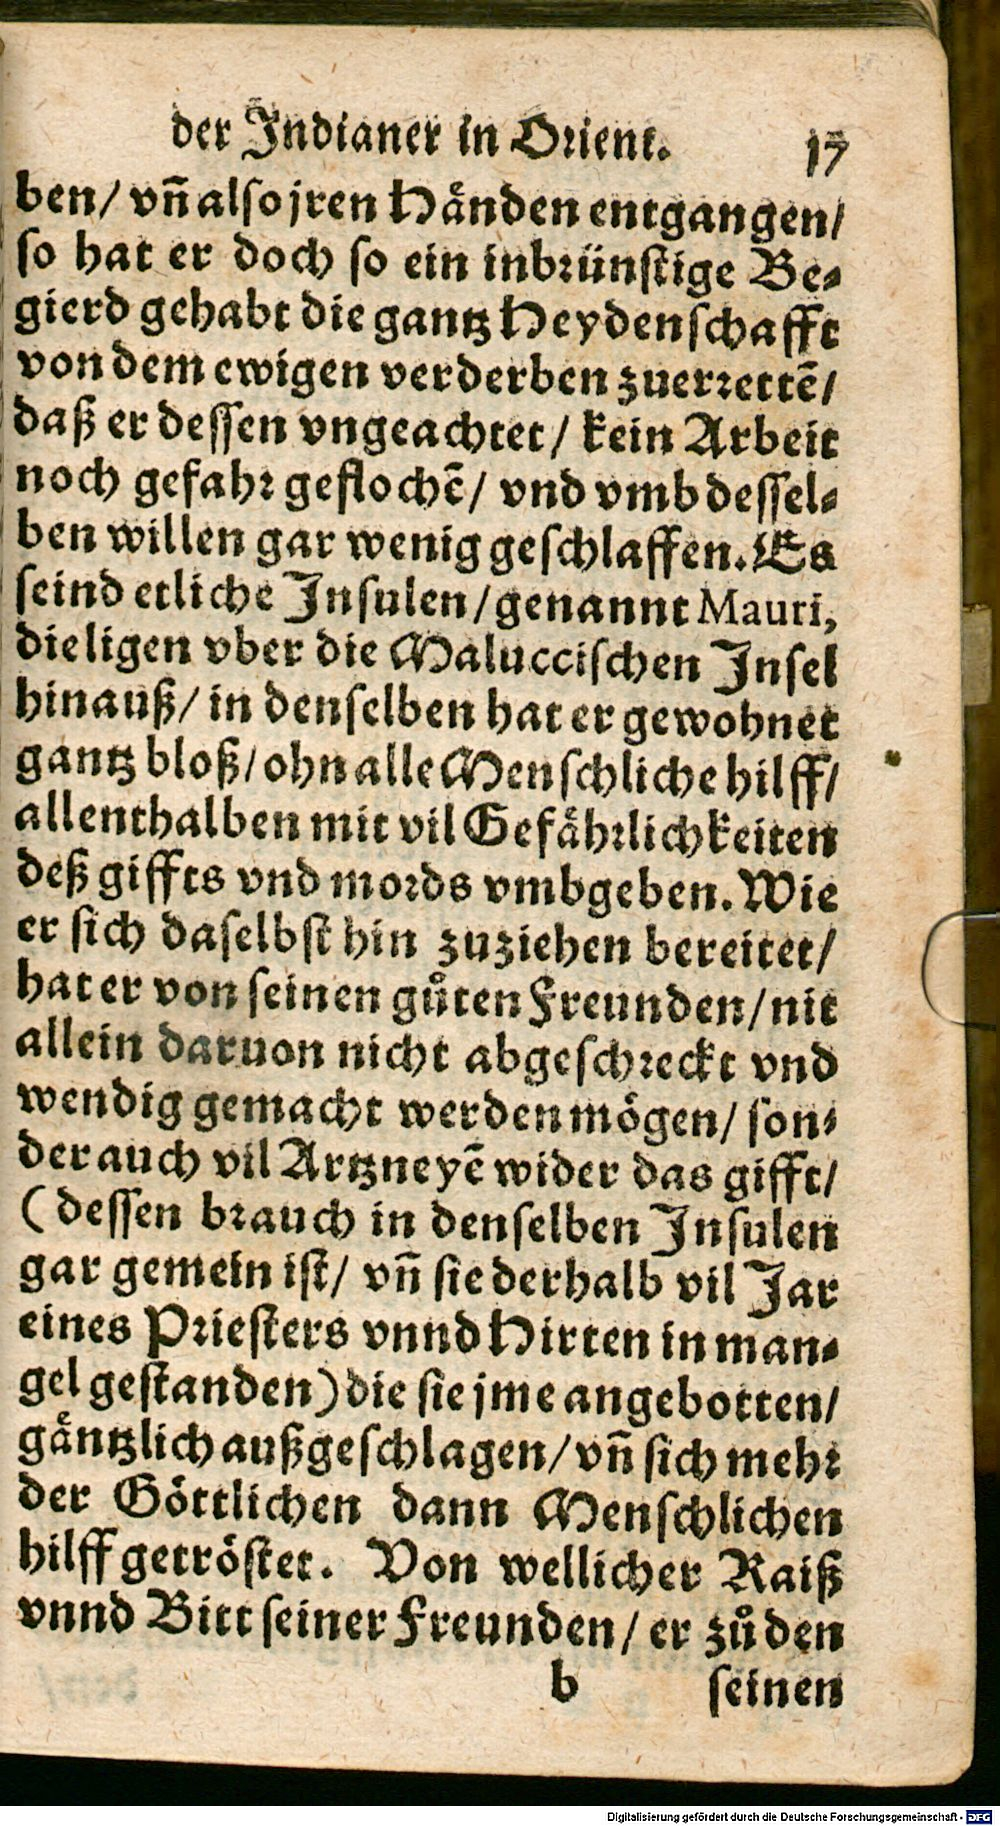 der Indianer in Orient. 17
ben/ vñ also jren Hånden entgangen/
so hat er doch so ein inbrünstige Be-
gierd gehabt die gantz Heydenschafft
von dem ewigen verderben zuerrettẽ/
daß er dessen vngeachtet/ kein Arbeit
noch gefahr geflochẽ/ vnd vmb dessel-
ben willen gar wenig geschlaffen. Es
seind etliche Insulen/ genannt Mauri,
die ligen vber die Maluccischen Insel
hinauß/ in denselben hat er gewohnet
gantz bloß/ ohn alle Menschliche hilff/
allenthalben mit vil Gefährlichkeiten
deß giffts vnd mords vmbgeben. Wie
er sich daselbst hin zuziehen bereitet/
hat er von seinen gůten Freunden/ nit
allein daruon nicht abgeschreckt vnd
wendig gemacht werden mögen/ son-
der auch vil Artzneyẽ wider das gifft/
(dessen brauch in denselben Insulen
gar gemein ist/ vñ sie derhalb vil Jar
eines Priesters vnnd Hirten in man-
gel gestanden) die sie jme angebotten/
gäntzlich außgeschlagen/ vñ sich mehr
der Göttlichen dann Menschlichen
hilff getröstet. Von wellicher Raiß
vnnd Bitt seiner Freunden/ er zů den
b seinen
Digitalisierung gefördert durch die Deutsche Forschungsgemeinschaft - DFG